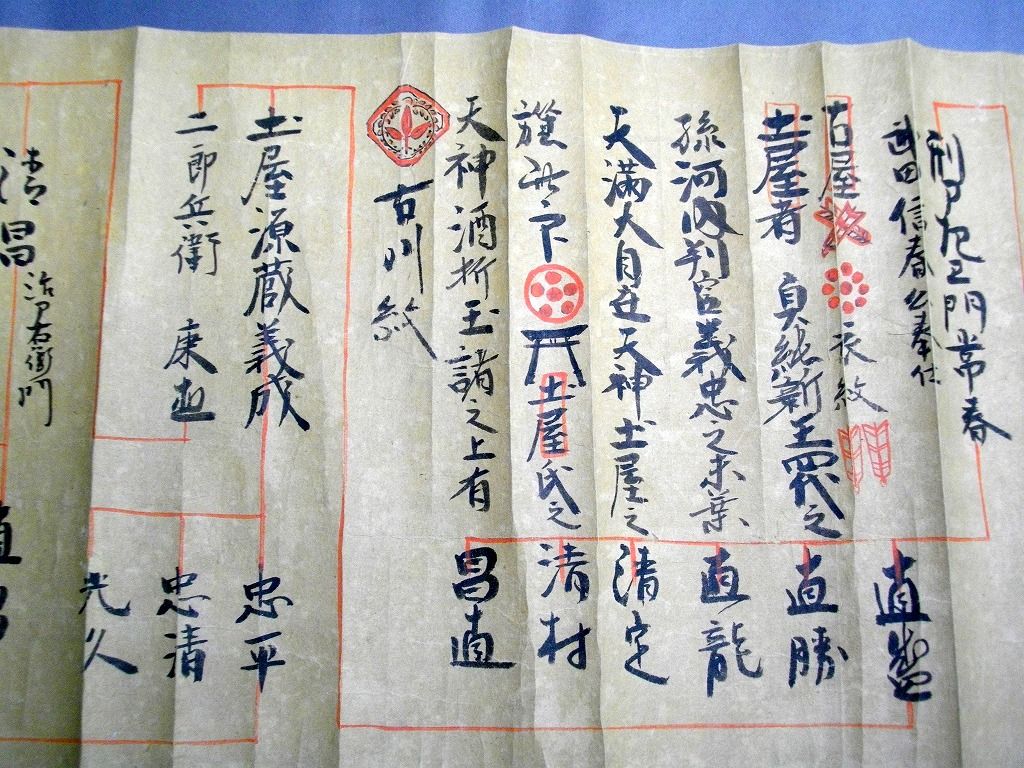 刑部左衛門常春
武田信春公奉仕
古屋 衣紋
土屋者 貞純新王四代之
孫河内判官義忠之末葉
天満大自在天神土屋之
土屋氏之
天神酒折玉諸之上有
古川紋
直
直勝
直龍
清定
清村
昌直
土屋源蔵義成
二郎兵衛 康
忠平
忠清
光久
清昌 治右衛門
直昌